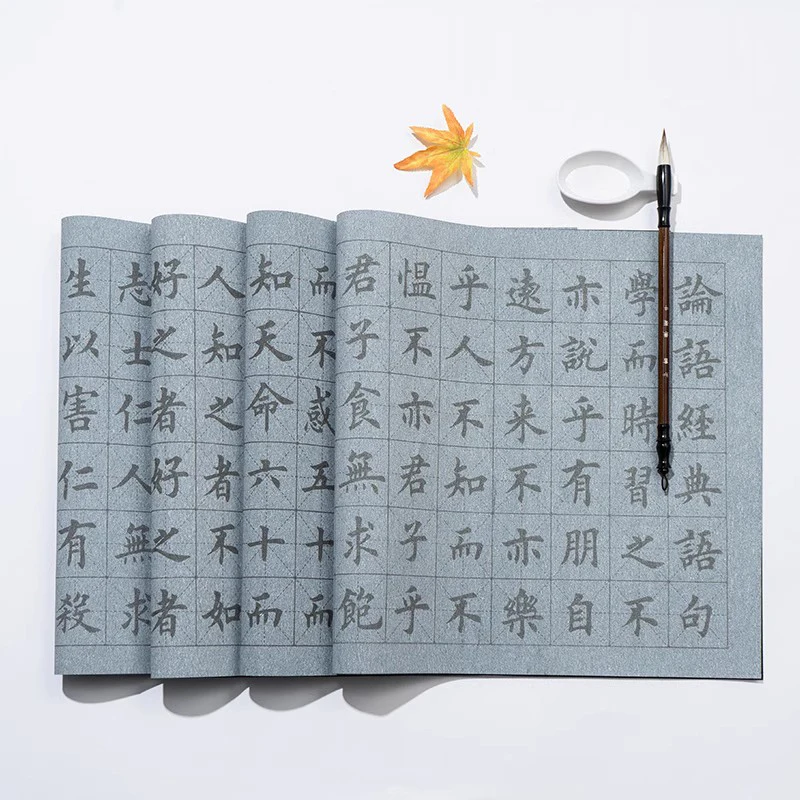 論語經典語句
學而時習之不
亦說乎有朋自
遠方来不亦樂
乎人不知而不
愠不亦君子乎
君子食無求飽
而不惑五十而
知天命六十而
人知之者不如
好之者好之者
志士仁人無求
生以害仁有殺